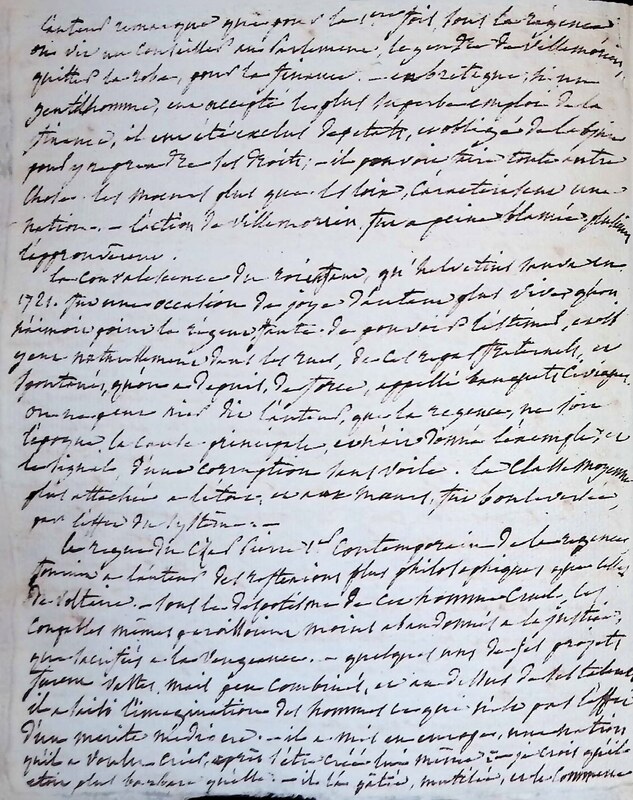 l'auteur remarque que pour la 1ere fois, sous la régence
on vit un conseiller au parlement, le gendre de Villemorien,
quitter la robe, pour la finance. – en bretagne, si un
gentilhomme, eut accepté le plus superbe emploi de la
finance, il eut été exclus des etats, et obligé de
pour y reprendre ses droits, – il pouvoit faire toute autre
chose. les moeurs plus que les loix, caracterisent une
nation. – l'action de Villemorien fut a peine blamée, plusieurs
l'approuverent.
la convalescence du roi enfant, qu'helvetius sauva en
1721. fut une occasion de joye d'autant plus vive, qu'on
n'aimoit point le régent faute de pouvoir l'estimer, on vit
naturellement dans les rues, de ces repas fraternels, et
spontanés, qu'on a depuis, de force, appellé banquets civiques.
on ne peut nier dit l'auteur, que la regence, ne soit
l'époque, la cause principale, et n'ait donné l'exemple, et
le signal, d'une corruption sans voile. la classe moyenne
plus attachée a l'état, et aux moeurs, fut bouleversée,
par l'effet du système. –
le regne du Czar Pierre 1er contemporain de la regence
fournit a l'auteur des reflexions plus philosophiques, que celles
de Voltaire. – sous le despotisme de cet homme cruel, les
coupables mêmes paroissoient moins abandonnés a la justice,
que sacrifiés a la vengeance. – quelques uns de ses projets
furent vastes, mais peu combinés, et au dessus de ses talents
il a saisi l'imagination des hommes ce qui n'est pas l'effet
d'un merite mediocre. – il a mis en ouvrage, une nation
qu'il a voulu créer, après s'être créé lui même : – je crois qu'il
etoit plus barbare qu'elle. – il l'a gâtée, mutilée, et le commerce